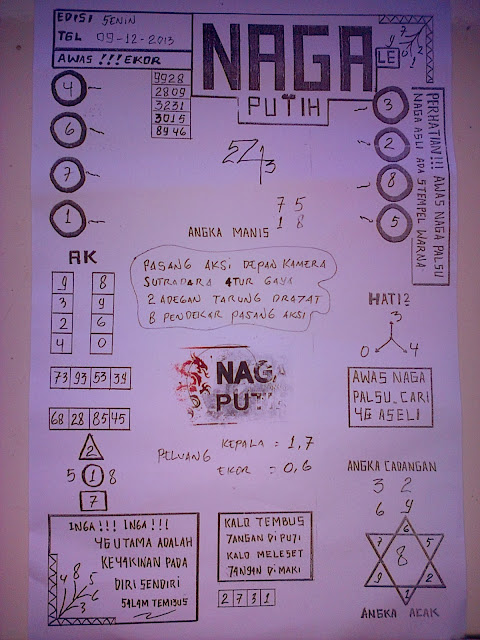 EDISI SENIN
TGL 09-12-2013
AWAS !!! EKOR
NAGA
PUTIH
LE
7 9
9 0 1 2
4
6
7
1
9928
2809
3231
3015
8946
3
2
8
5
PERHATIAN!!! AWAS NAGA PALSU
NAGA ASLI ADA STEMPEL WARNA
5 2 4 3
7 5
ANGKA MANIS 1 8
AK
9 8
3 9
2 6
4 0
PASANG AKSI DEPAN KAMERA
SUTRADARA 4TUR GAYA
2 ADEGAN TARUNG DRAJAT
8 PENDEKAR PASANG AKSI
HATI2
3
0 4
73 93 53 39
68 28 85 45
NAGA
PUTIH
AWAS NAGA
PALSU. CARI
YG ASELI
2
5 1 8
7
PELUANG KEPALA = 1,7
EKOR = 0,6
ANGKA CADANGAN
3 2
6 9
6
7 5
8
9 2
1
ANGKA ACAK
INGA !!! INGA !!!
YG UTAMA ADALAH
KEYAKINAN PADA
DIRI SENDIRI
SALAM TEMBUS
4 8 5
6
3
KALO TEMBUS
JANGAN DIPUJI
KALO MELESET
JANGAN DIMAKI
2 7 3 1